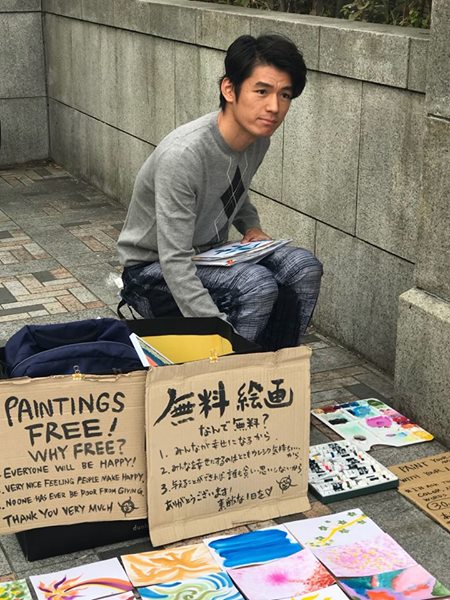 PAINTINGS
FREE!
WHY FREE?
. EVERYONE WILL BE HAPPY!
. VERY NICE FEELING PEOPLE MAKE HAPPY,
. NO ONE HAS EVER BE POOR FROM GIVING.
THANK YOU VERY MUCH
無料 絵画
なんで無料?
1. みんなが幸せになるから。
2. みんな幸せにするのはとてもウレシイ気持ちいい
から
3. 
ありがとうございます!
素敵な1日を♡
PAINT